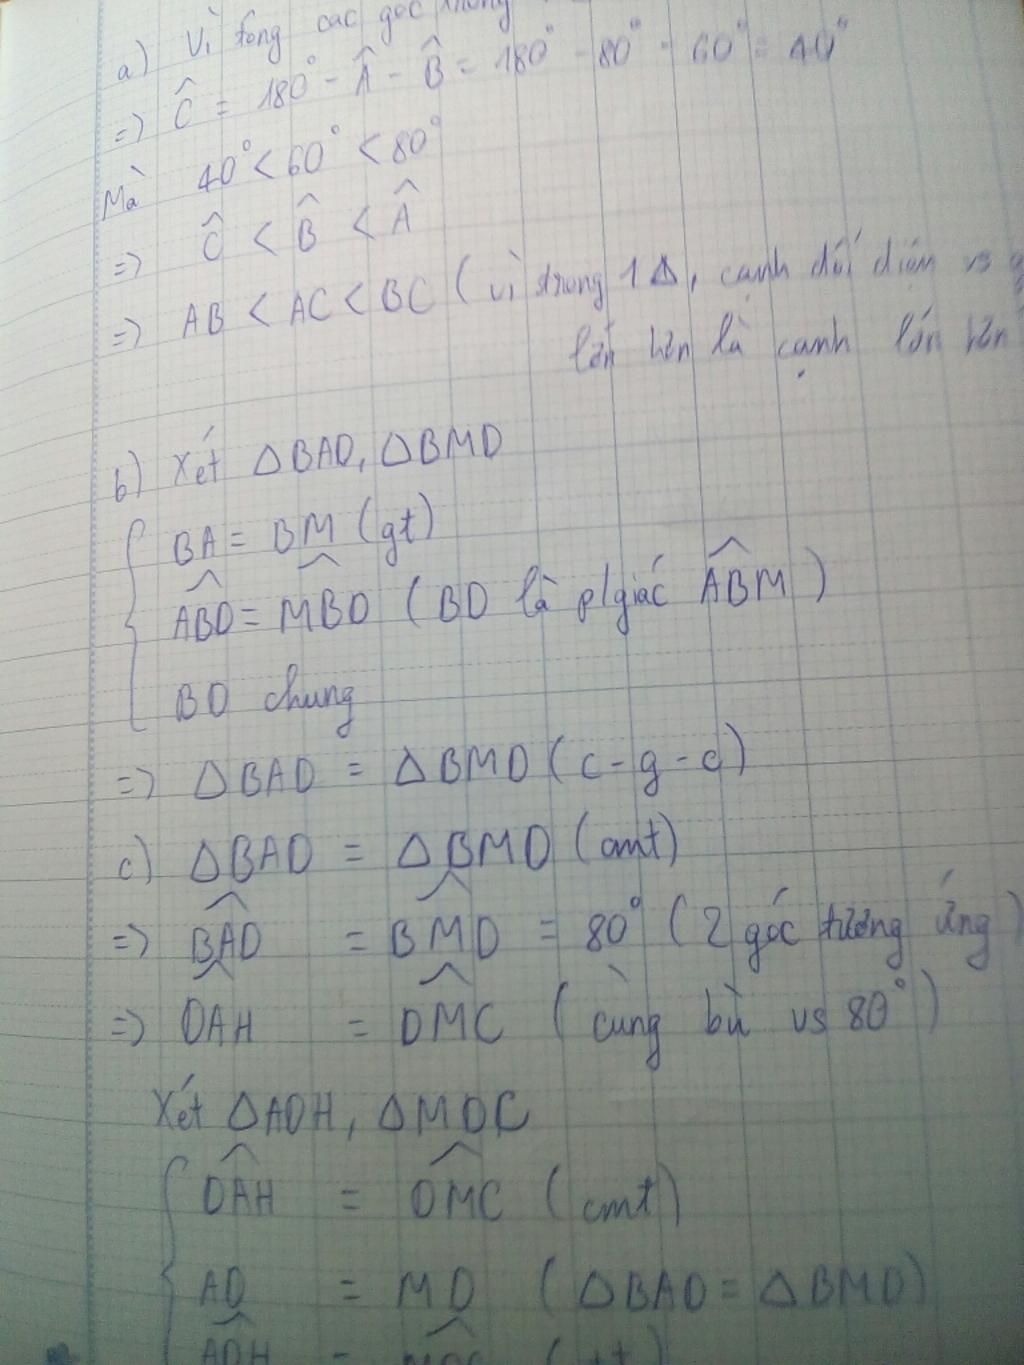 a) Vì tổng các góc trong
=> Ĉ = 180° - Â - B̂ = 180° - 80° - 60° = 40°
Mà 40° < 60° < 80°
=> Ĉ < B̂ < Â
=> AB < AC < BC ( vì trong 1 Δ, cạnh đối diện vs
lớn hơn là cạnh lớn hơn
b) Xét ΔBAD, ΔBMD
BA = BM (gt)
ABD = MBD ( BD là p/giác ABM )
BD chung
=> ΔBAD = ΔBMD ( c - g - c )
c) ΔBAD = ΔBMD (cmt)
=> BAD = BMD = 80° ( 2 góc tương ứng )
=> DAH = DMC ( cùng bù vs 80° )
Xét ΔADH, ΔMDC
DAH = DMC (cmt)
AD = MD ( ΔBAD = ΔBMD )
ADH = MDC